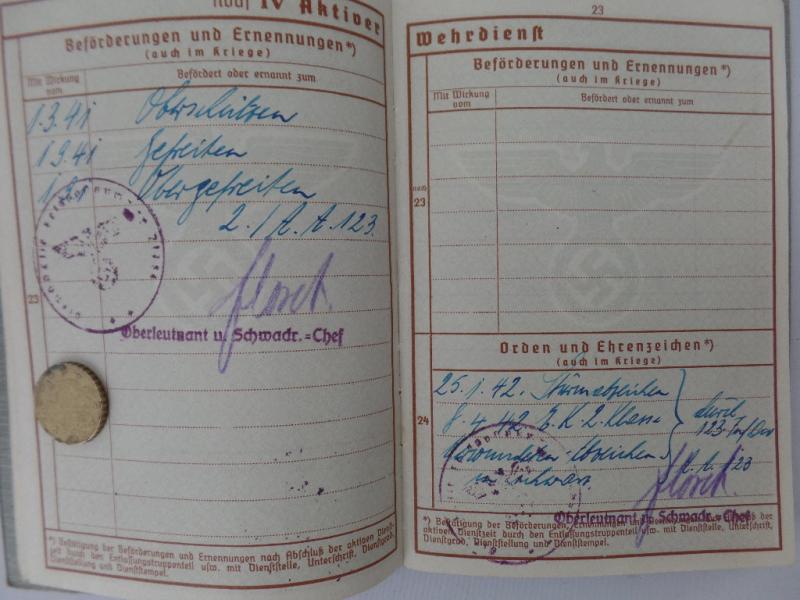 noch IV Aktiver
Beförderungen und Ernennungen*)
(auch im Kriege)
Mit Wirkung vom
Befördert oder ernannt zum
1.3.41 Oberschützen
1.9.41 Gefreiten
Obergefreiten
2./A.A.123.
23
Oberleutnant u. Schwadr.=Chef
*) Bestätigung der Beförderungen und Ernennungen nach Abschluß der aktiven Dienst-
zeit durch den Entlassungstruppenteil usw. mit Dienststelle, Unterschrift, Dienstgrad,
Dienststellung und Dienststempel.
23
Wehrdienst
Beförderungen und Ernennungen*)
(auch im Kriege)
Mit Wirkung vom
Befördert oder ernannt zum
noch
23
Orden und Ehrenzeichen*)
(auch im Kriege)
25.1.42. Sturmabzeichen
8.4.42 E.K.2.Klasse
durch
24
123. Inf. Div
Verwundeten-Abzeichen
A.A.123
in Schwarz
Oberleutnant u. Schwadr.=Chef
*) Bestätigung der Beförderungen, Ernennungen und der
aktiven Dienstzeit durch den Entlassungstruppenteil usw. mit Dienststelle, Unterschrift,
Dienstgrad, Dienststellung und Dienststempel.